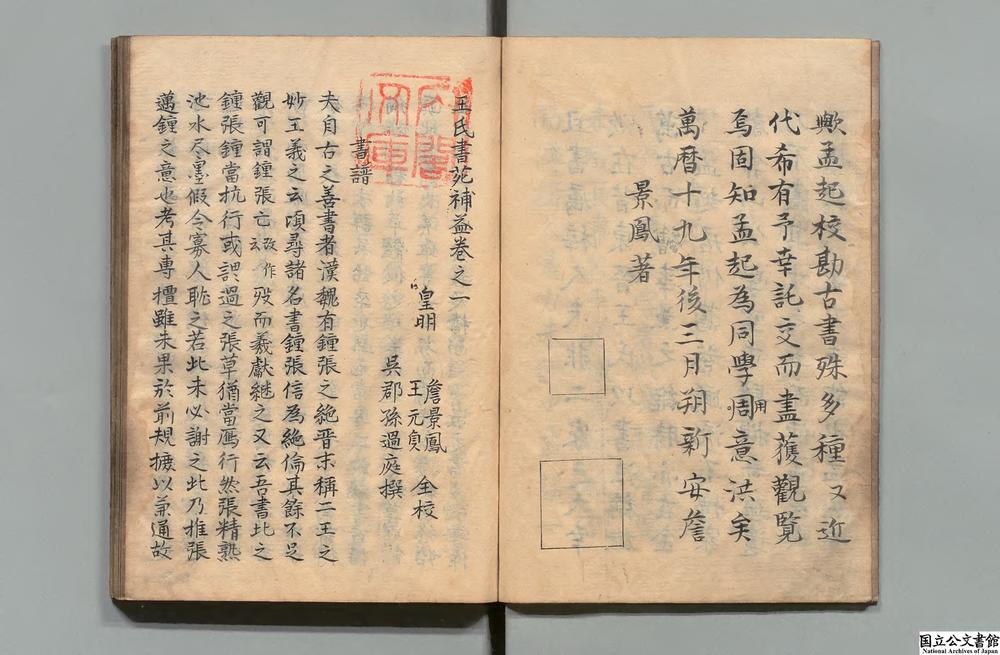 歟孟起校勘古書殊多種又近
代希有予幸託交而盡獲觀覽
焉固知孟起為同學周用意洪矣
萬曆十九年後三月朔新安詹
景鳳著
王氏書苑補益卷之一
皇明
詹景鳳
王元貞
仝校
吳郡孫過庭撰
書譜
夫自古之善書者漢魏有鍾張之絶晋末稱二王之
妙王羲之云頃尋諸名書鍾張信為絶倫其餘不足
觀可謂鍾張亡云改作歿而羲獻継之又云吾書比之
鍾張鍾當抗行或謂過之張草猶當鴈行然張精熟
池水尽墨假令寡人耽之若此未必謝之此乃推張
邁鍾之意也考其專擅雖未果於前規摭以兼通故
国立公文書館
National Archives of Japan